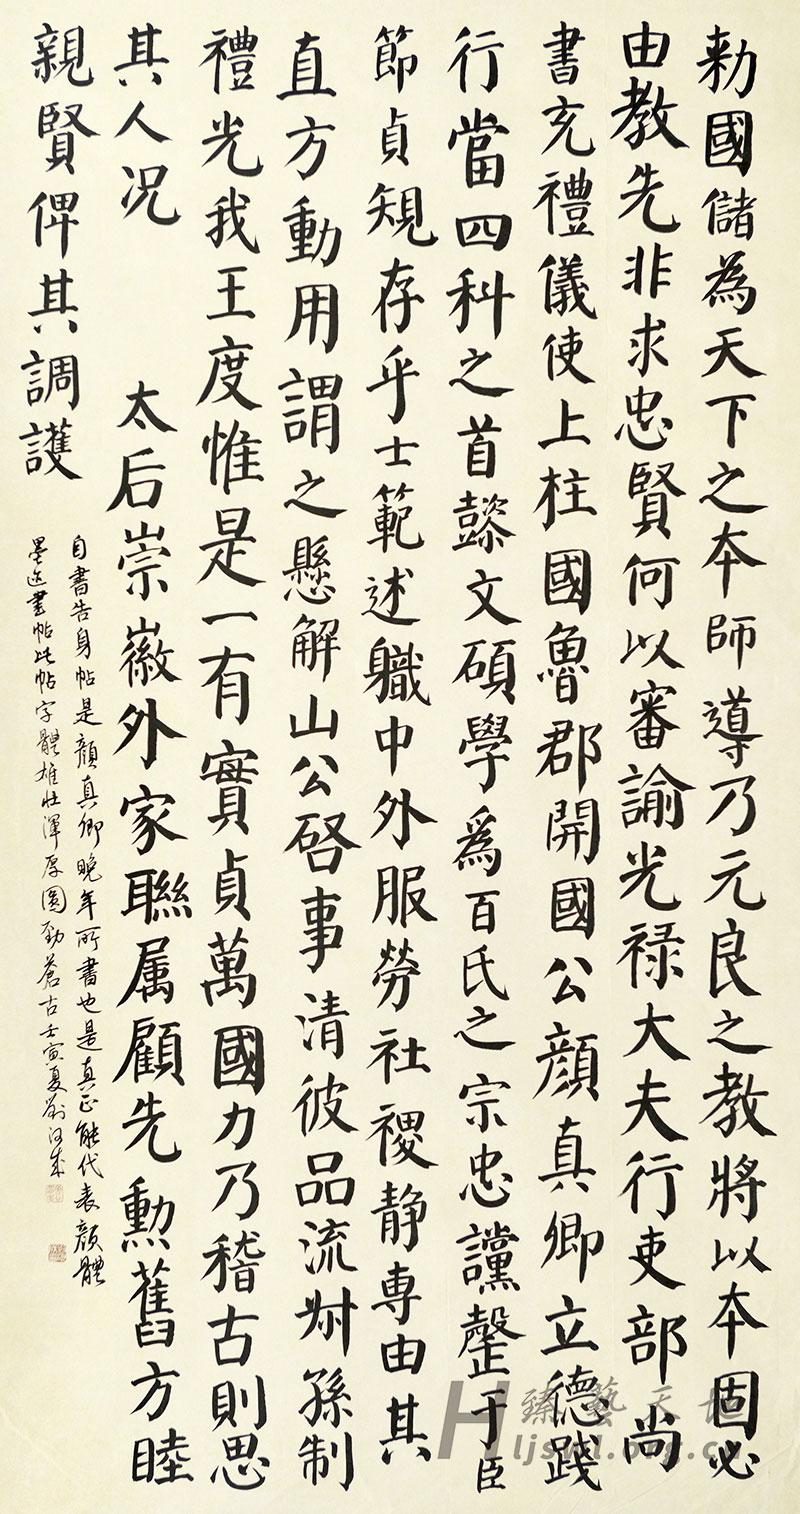 勅國儲為天下之本師導乃元良之教將以本固必
由教先非求忠賢何以審諭光禄大夫行吏部尚
書充禮儀使上柱國魯郡開國公顔真卿立德踐
行當四科之首懿文碩學爲百氏之宗忠讜罄于臣
節貞規存乎士範述職中外服勞社稷静専由其
直方動用謂之懸解山公啓事清彼品流叔孫制
禮光我王度惟是一有實貞萬國力乃稽古則思
其人况 太后崇徽外家聯属顧先勲舊方睦
親賢俾其調護
自書告身帖是顔真卿晚年所書也是真正能代表顔體
墨迹書帖此帖字體雄壯渾厚圓劲蒼古壬寅夏劉
臻藝天地
Hljsyl.org.cn